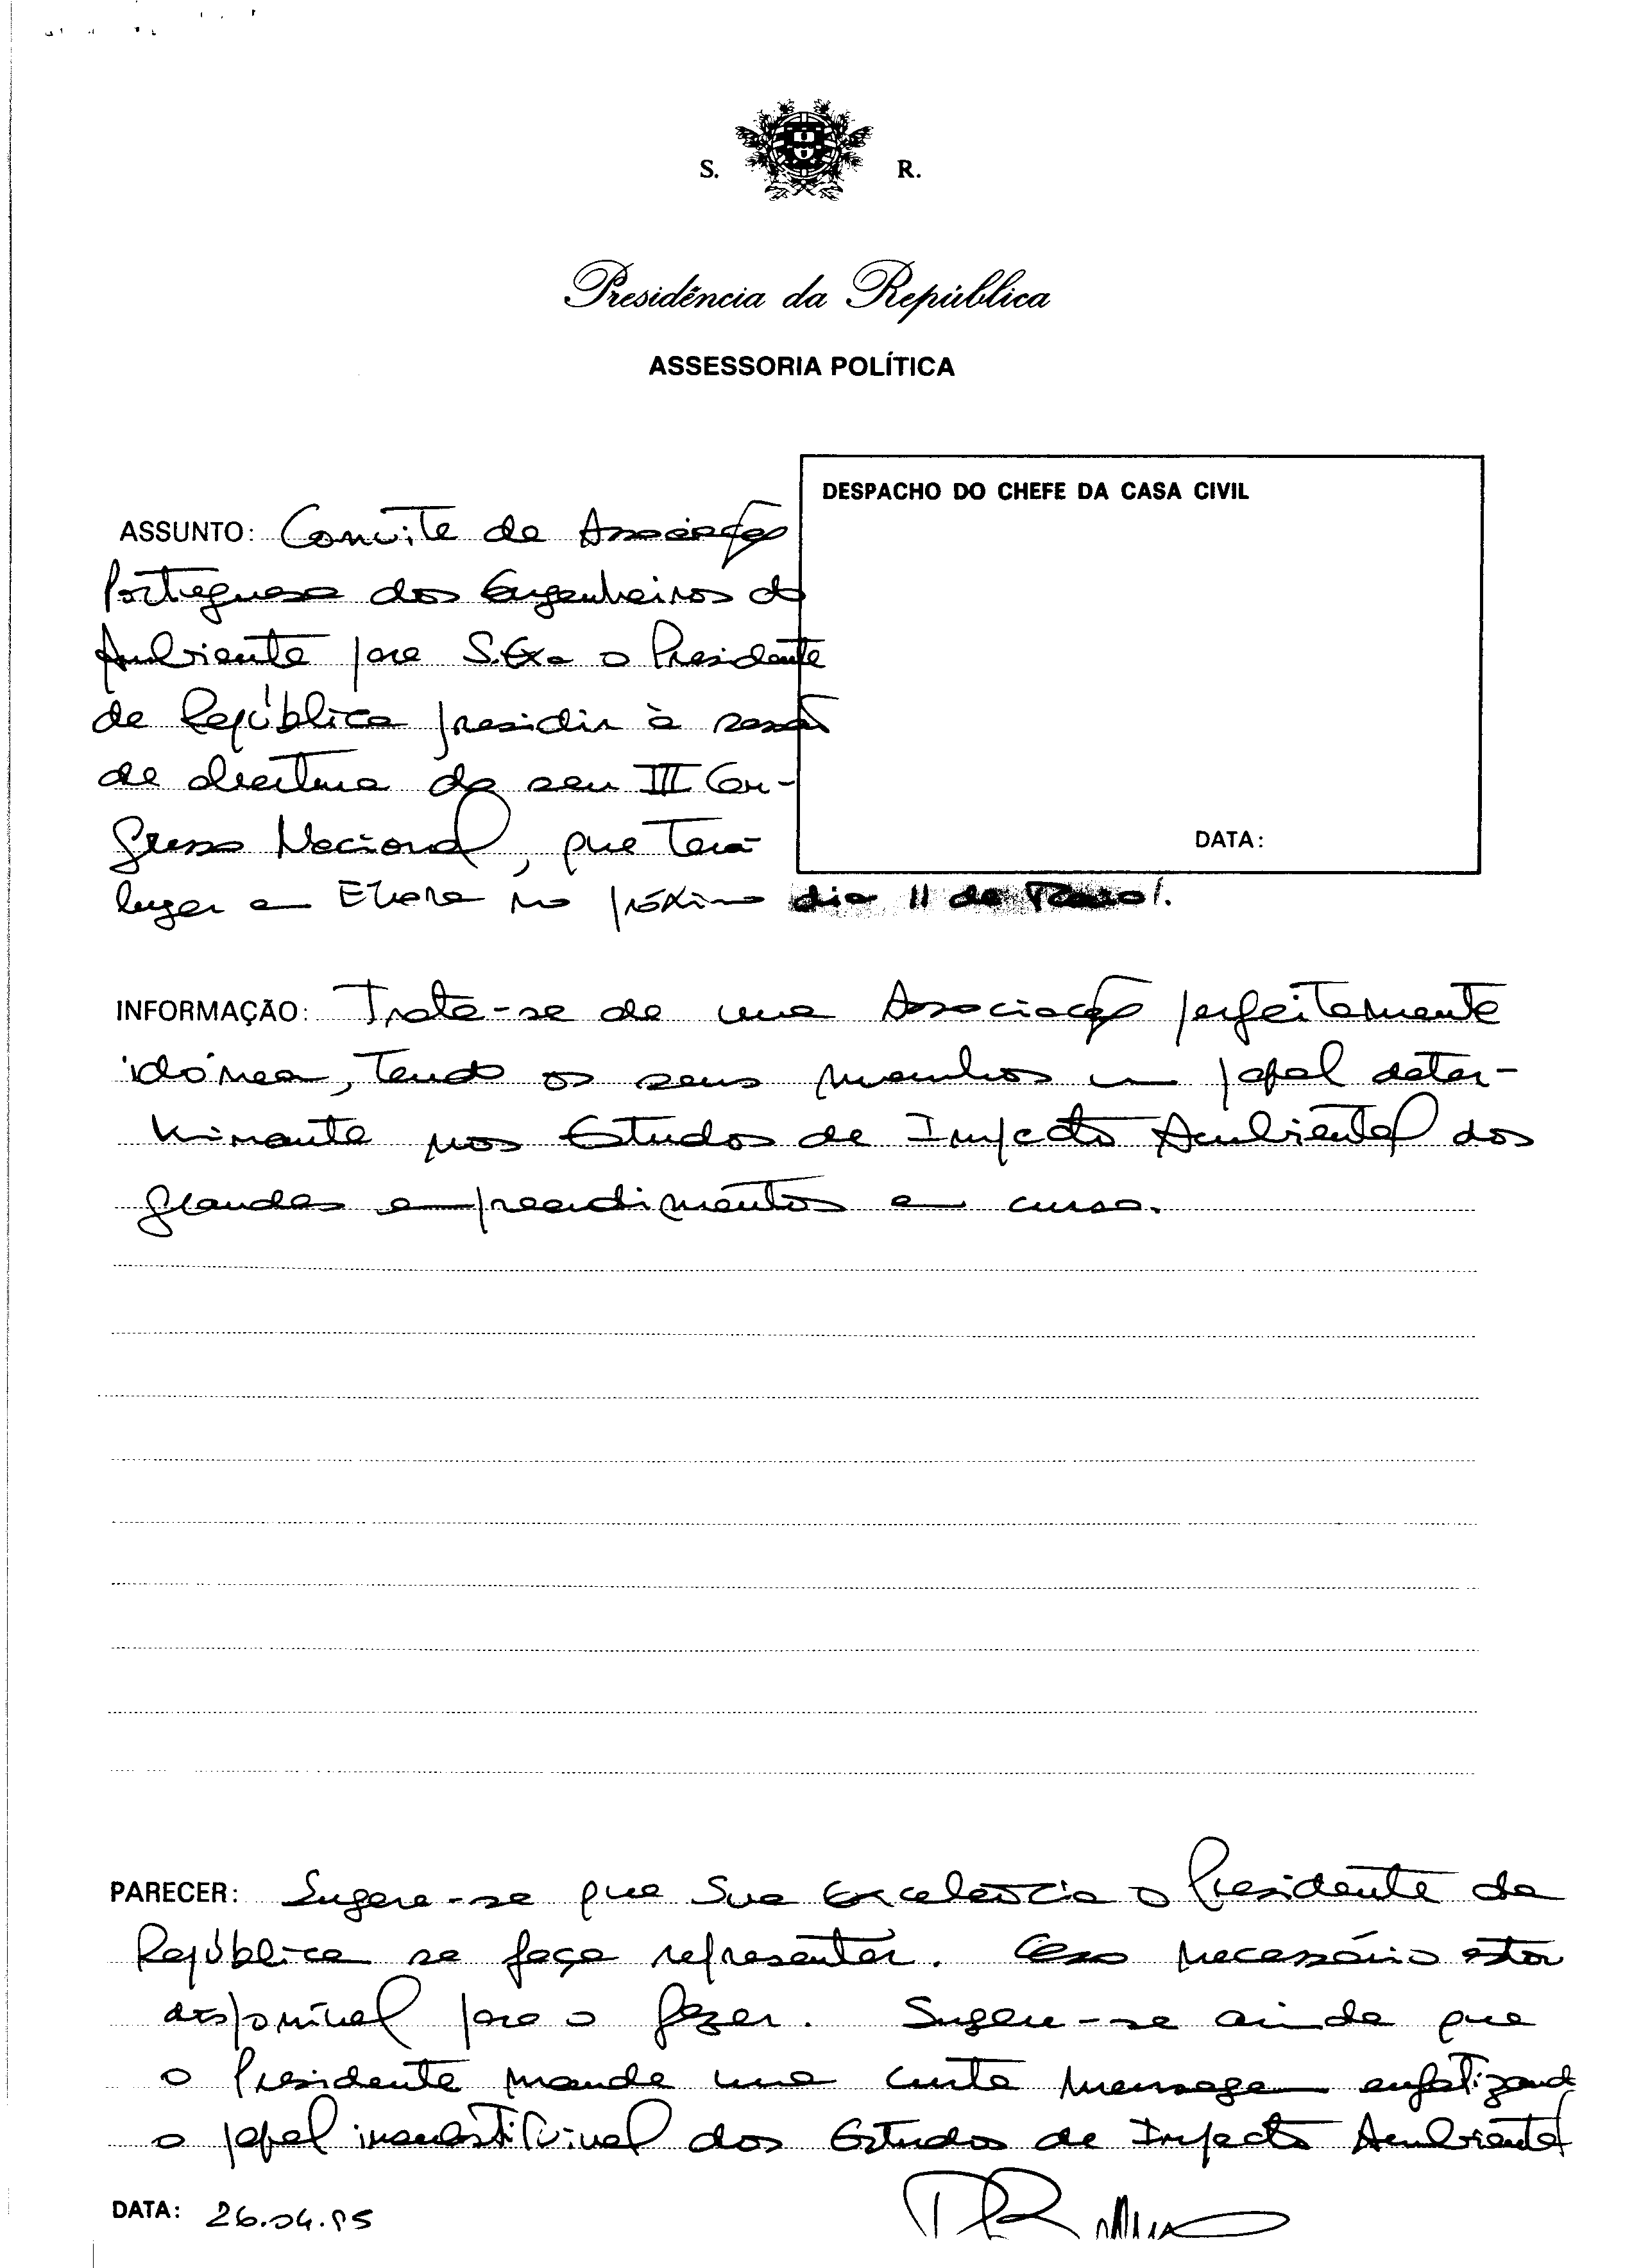 S. R.
Presidência da República
ASSESSORIA POLÍTICA
DESPACHO DO CHEFE DA CASA CIVIL
DATA:
ASSUNTO: Convite da Associação
Portuguesa dos Engenheiros do
Ambiente para S.Exa o Presidente
da República presidir à sessão
de abertura do seu III Con-
gresso Nacional, que terá
lugar em Évora no próximo dia 11 de
INFORMAÇÃO: Trata-se de uma Associação perfeitamente
idónea, tendo os seus membros um papel deter-
minante nos Estudos de Impacto Ambiental dos
grandes empreendimentos em curso.
PARECER: Sugere-se que Sua Excelência o Presidente da
República se faça representar. Caso necessário estou
disponível para o fazer. Sugere-se ainda que
o Presidente mande uma curta mensagem enfatizando
o papel insubstituível dos Estudos de Impacto Ambiental
DATA: 26.04.95